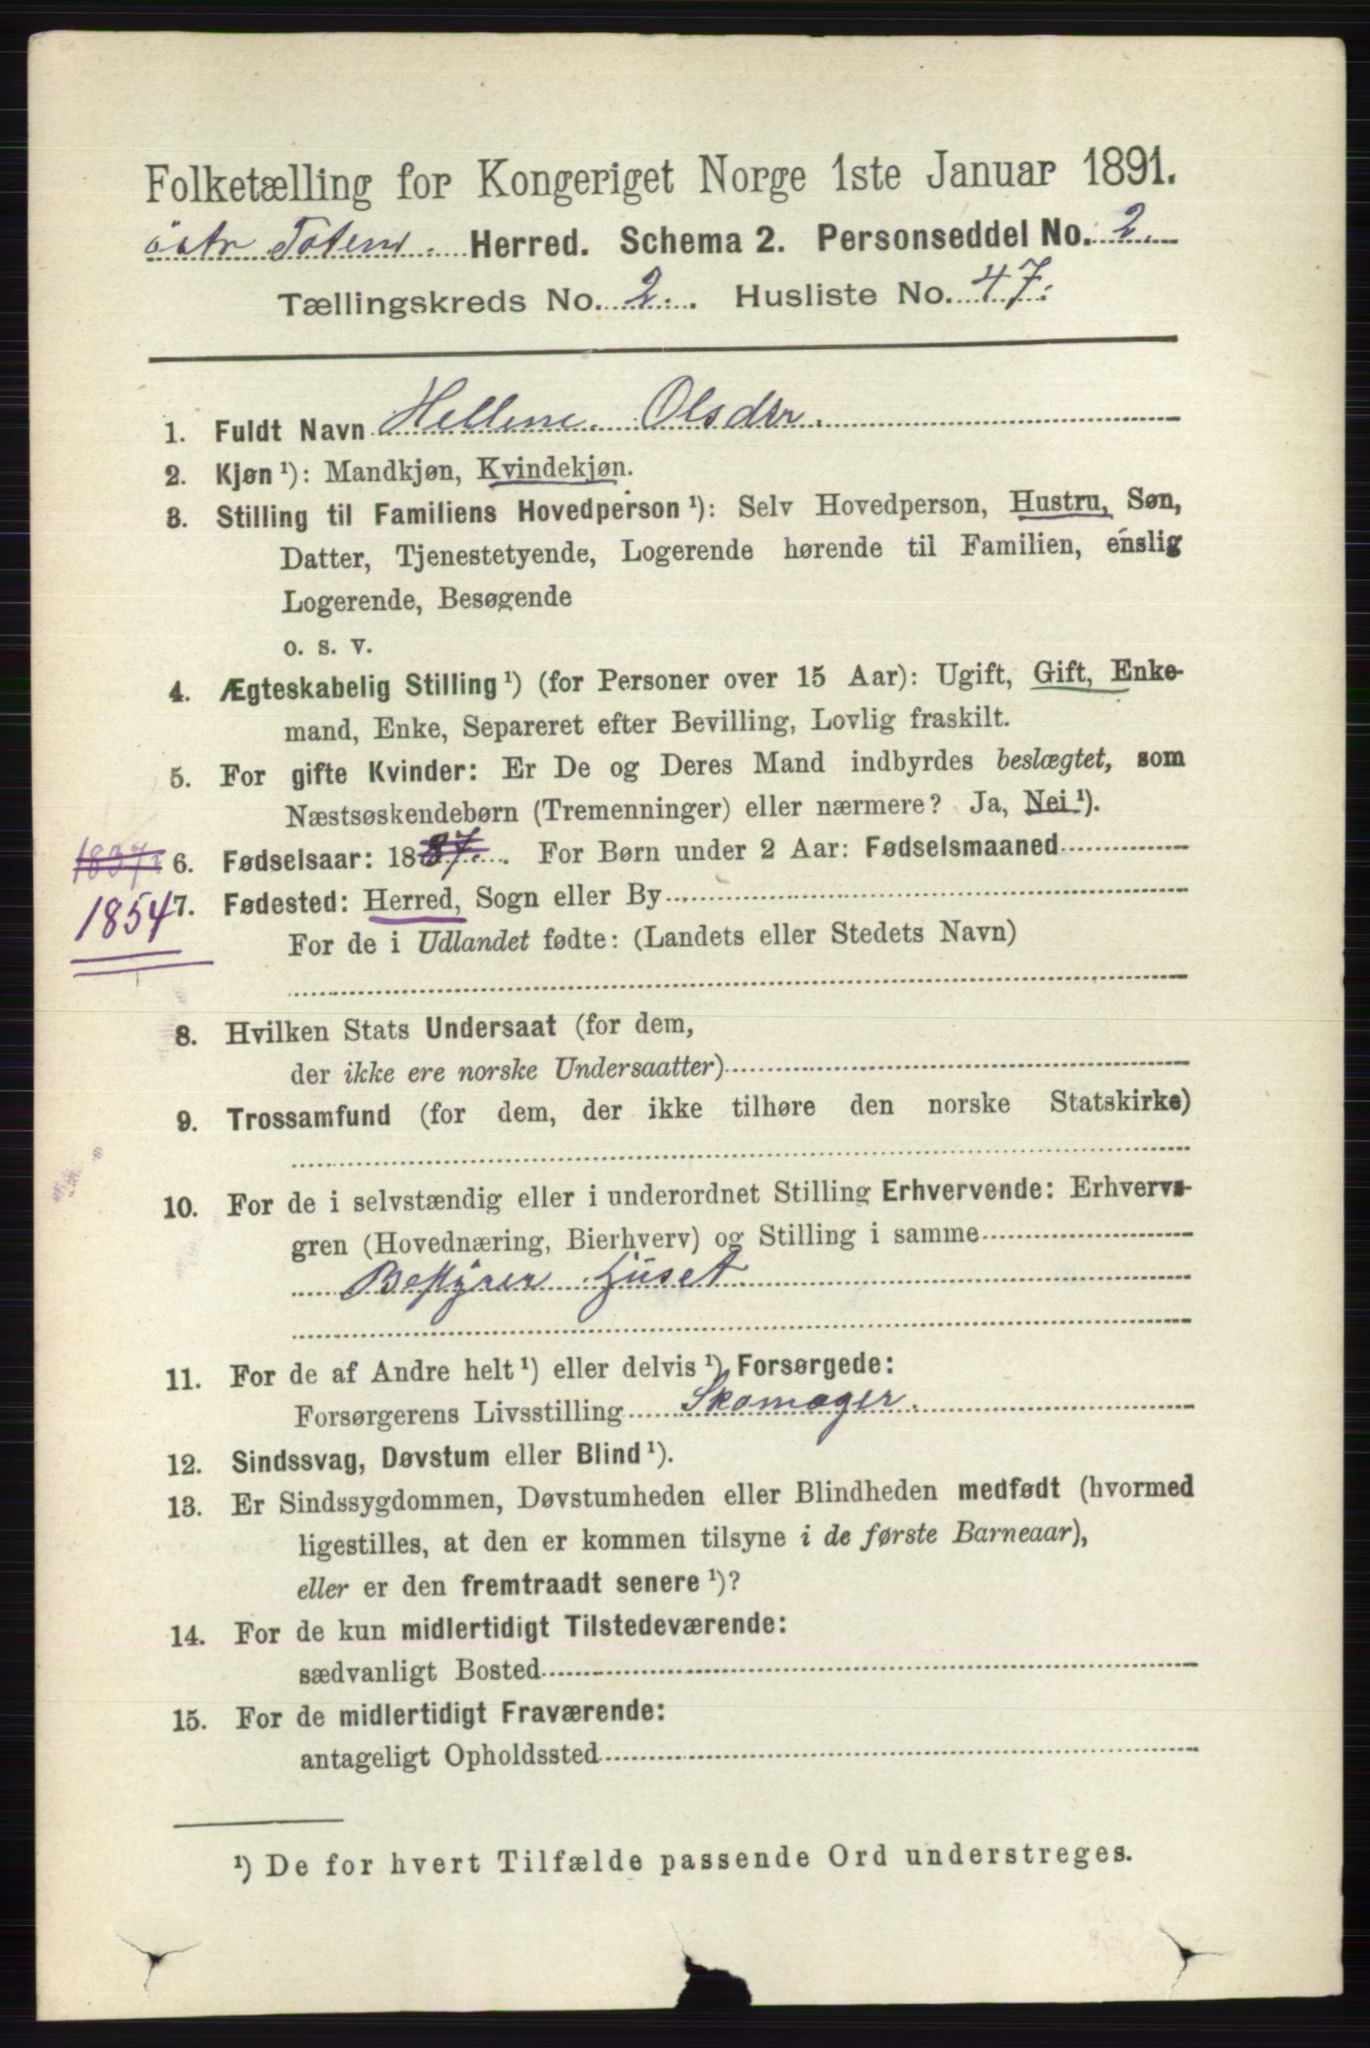 Folketælling for Kongeriget Norge 1ste Januar 1891.
östr Toten. Herred. Schema 2. Personseddel No. 2.
Tællingskreds No. 2. Husliste No. 47.
1. Fuldt Navn Hellene Olsdtr.
2. Kjøn ¹): Mandkjøn, Kvindekjøn.
3. Stilling til Familiens Hovedperson ¹): Selv Hovedperson, Hustru, Søn,
Datter, Tjenestetyende, Logerende hørende til Familien, enslig
Logerende, Besøgende
o. s. v.
4. Ægteskabelig Stilling ¹) (for Personer over 15 Aar): Ugift, Gift, Enke-
mand, Enke, Separeret efter Bevilling, Lovlig fraskilt.
5. For gifte Kvinder: Er De og Deres Mand indbyrdes beslægtet, som
Næstsøskendebørn (Tremenninger) eller nærmere? Ja, Nei ¹).
1837. 6. Fødselsaar: 1837. For Børn under 2 Aar: Fødselsmaaned
1854 7. Fødested: Herred, Sogn eller By
For de i Udlandet fødte: (Landets eller Stedets Navn)
8. Hvilken Stats Undersaat (for dem,
der ikke ere norske Undersaatter)
9. Trossamfund (for dem, der ikke tilhøre den norske Statskirke)
10. For de i selvstændig eller i underordnet Stilling Erhvervende: Erhvervs-
gren (Hovednæring, Bierhverv) og Stilling i samme
Bestyrer huset
11. For de af Andre helt ¹) eller delvis ¹) Forsørgede:
Forsørgerens Livsstilling Skomager.
12. Sindssvag, Døvstum eller Blind ¹).
13. Er Sindssygdommen, Døvstumheden eller Blindheden medfødt (hvormed
ligestilles, at den er kommen tilsyne i de første Barneaar),
eller er den fremtraadt senere ¹)?
14. For de kun midlertidigt Tilstedeværende:
sædvanligt Bosted
15. For de midlertidigt Fraværende:
antageligt Opholdssted
¹) De for hvert Tilfælde passende Ord understreges.